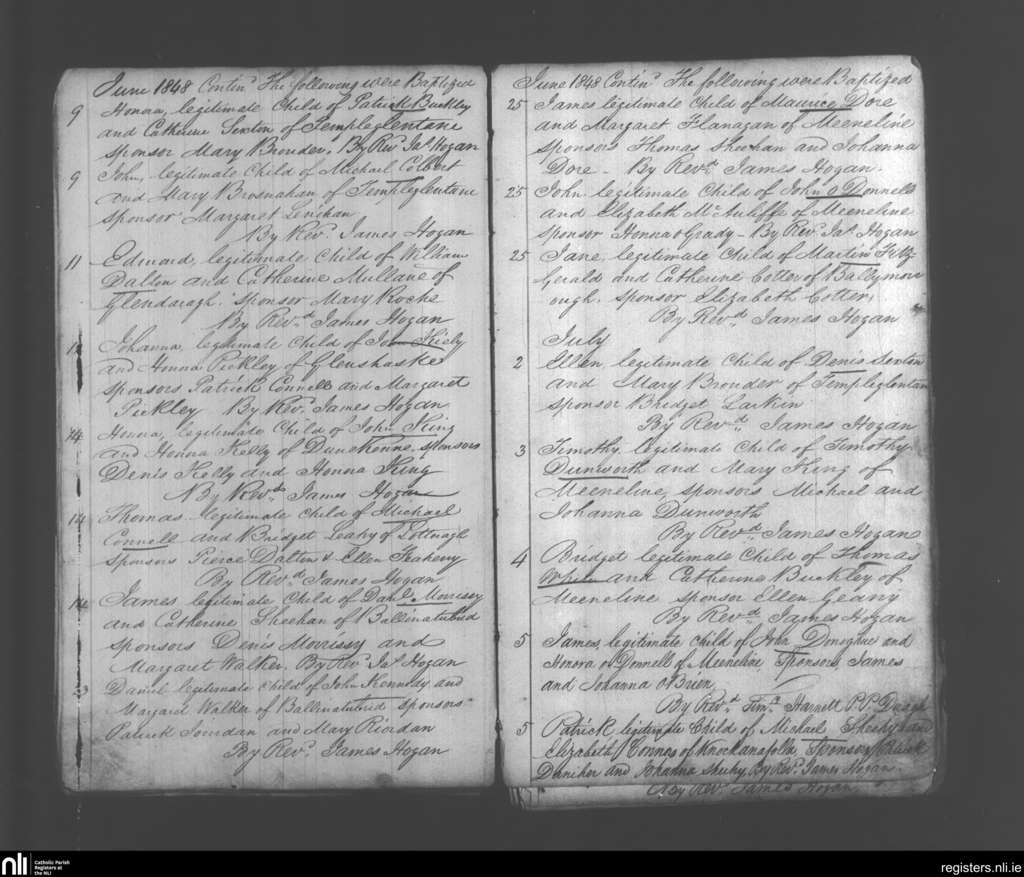 June 1848 Contind The following were Baptized
9 Honora, legitimate Child of Patrick Buckley
and Catherine Sexton of Templeglentane
sponsor Mary Brouder. By Revd Jas Hogan
9 John, legitimate Child of Michael Colbert
and Mary Brosnahan of Templeglentane
sponsor Margaret Lenihan
By Revd James Hogan
11 Edward, legitimate Child of William
Dalton and Catherine Mullane of
Glendaragh. Sponsor Mary Roche
By Revd James Hogan
Johanna, legitimate Child of John Kiely
and Honna Pickley of Glenshaske
sponsors Patrick Connell and Margaret
Pickley By Revd James Hogan
14 Honna, legitimate Child of John King
and Honna Kelly of sponsors
Denis Kelly and Honna King
By Revd James Hogan
14 Thomas legitimate Child of Michael
Connell and Bridget Leahy of
sponsors Pierce Dalton & Ellen
By Revd James Hogan
14 James legitimate Child of Danl Morrissy
and Catherine Sheehan of Ballinatubrid
sponsors Denis Morrissy and
Margaret Walker. By Revd Jas Hogan
Daniel legitimate child of John Kennedy and
Margaret Walker of Ballinatubrid sponsors
Patrick and Mary Riordan
By Revd James Hogan
June 1848 Contind The following were Baptized
25 James legitimate Child of Maurice Dore
and Margaret Flanagan of Meeneline
sponsors Thomas Sheehan and Johanna
Dore - By Revd James Hogan
25 John legitimate Child of John O Donnell
and Elizabeth McAuliffe of Meeneline
sponsor Honna O Grady - By Revd Jas Hogan
25 Jane, legitimate Child of Martin Fitz
Gerald and Catherine Cotter of Ballymur
ough. sponsor Elizabeth Cotter,
By Revd James Hogan
July
2 Ellen, legitimate Child of Denis Sexton
and Mary Brouder of Templeglentan
sponsor Bridget Larkin
By Revd James Hogan
3 Timothy, legitimate Child of Timothy
Dunworth and Mary King of
Meeneline, sponsors Michael and
Johanna Dunworth
By Revd James Hogan
4 Bridget legitimate Child of Thomas
White and Catherine Buckley of
Meeneline sponsor Ellen Geany
By Revd James Hogan
5 James, legitimate child of Donoghue and
Honora O Donnell of Meeneline, Sponsors, James
and Johanna O Brien,
By Revd Timy Harnett P.P.
5 Patrick legitimate Child of Michael Sheehy and
Elizabeth Connor of Knockanafolla, Sponsors Patrick
Danihor and Johanna Sheehy By Revd James Hogan.
By Revd James Hogan
nli
Catholic Parish
Registers at
the NLI
registers.nli.ie